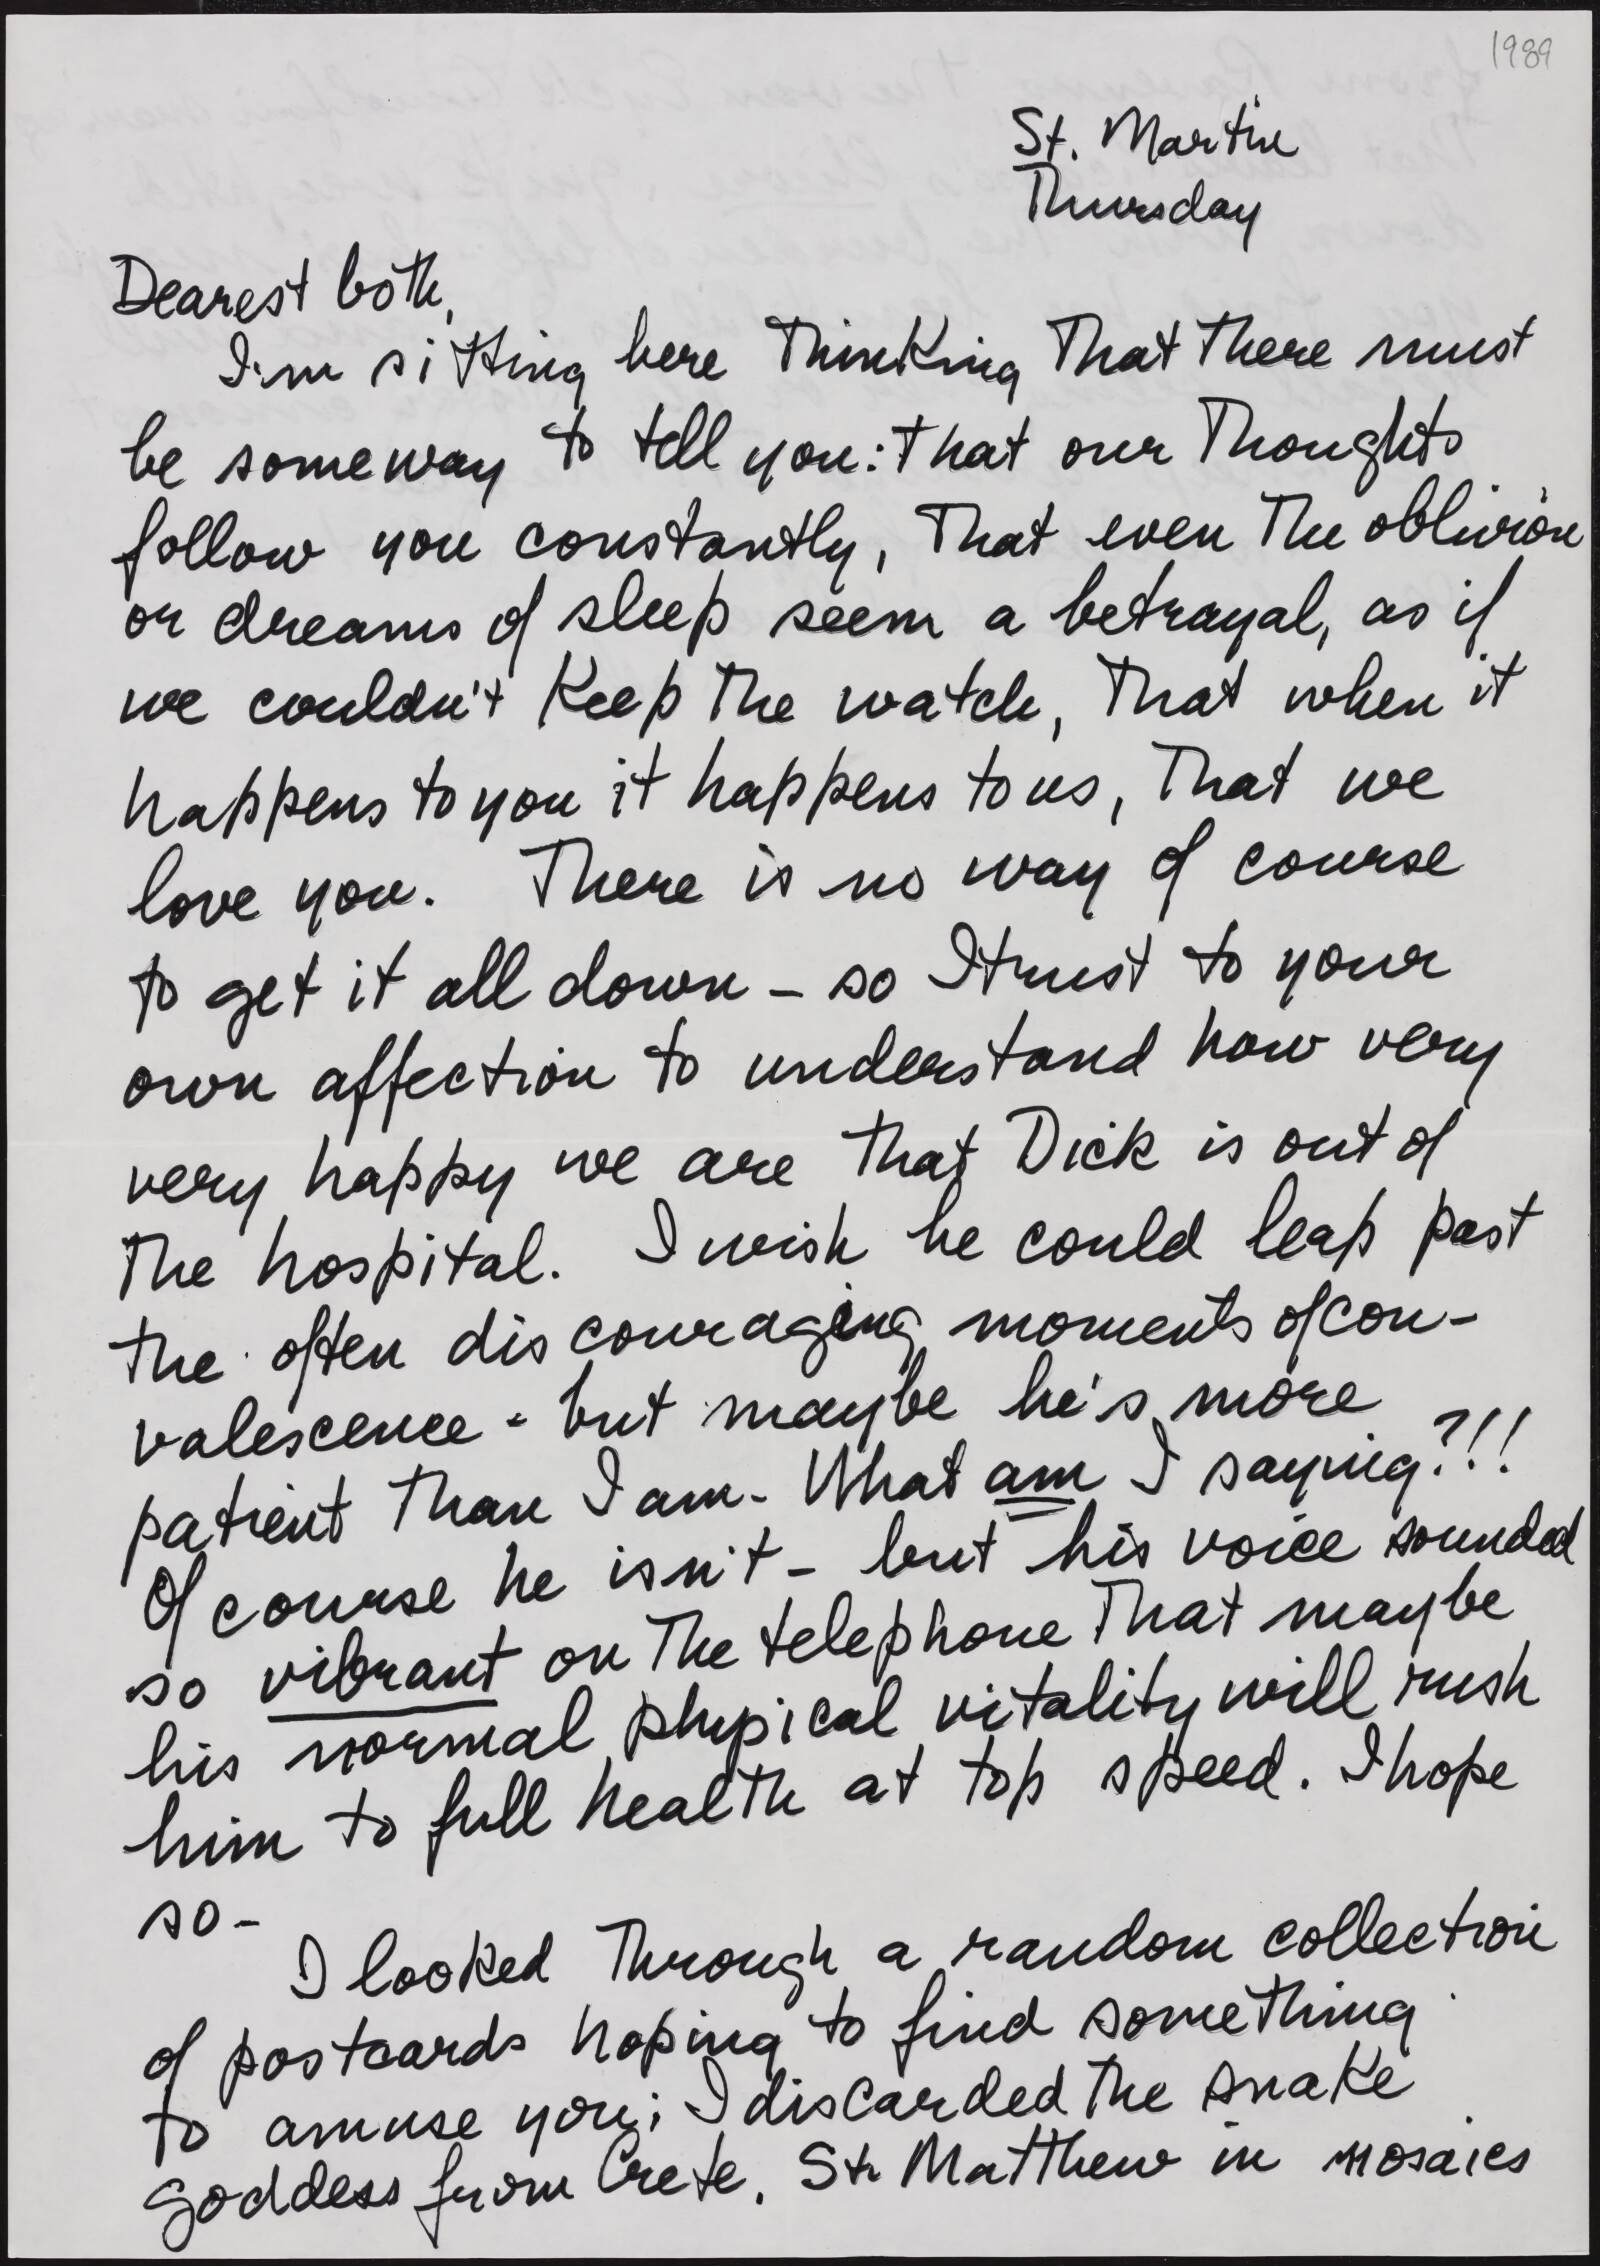 1989
St. Martin
Thursday
Dearest both,
I'm sitting here thinking that there must
be someway to tell you: that our thoughts
follow you constantly, that even the oblivion
or dreams of sleep seem a betrayal, as if
we couldn't keep the watch, that when it
happens to you it happens to us, that we
love you. There is no way of course
to get it all down – so I trust to your
own affection to understand how very
very happy we are that Dick is out of
the hospital. I wish he could leap past
the often discouraging moments of con-
valescence - but maybe he's more
patient than I am - What am I saying?!!!
Of course he isn't – but his voice sounded
so vibrant on the telephone that maybe
his normal physical vitality will rush
him to full health at top speed. I hope
so –
I looked through a random collection
of postcards hoping to find something
to amuse you; I discarded the snake
goddess from Crete, St. Matthew in mosaics